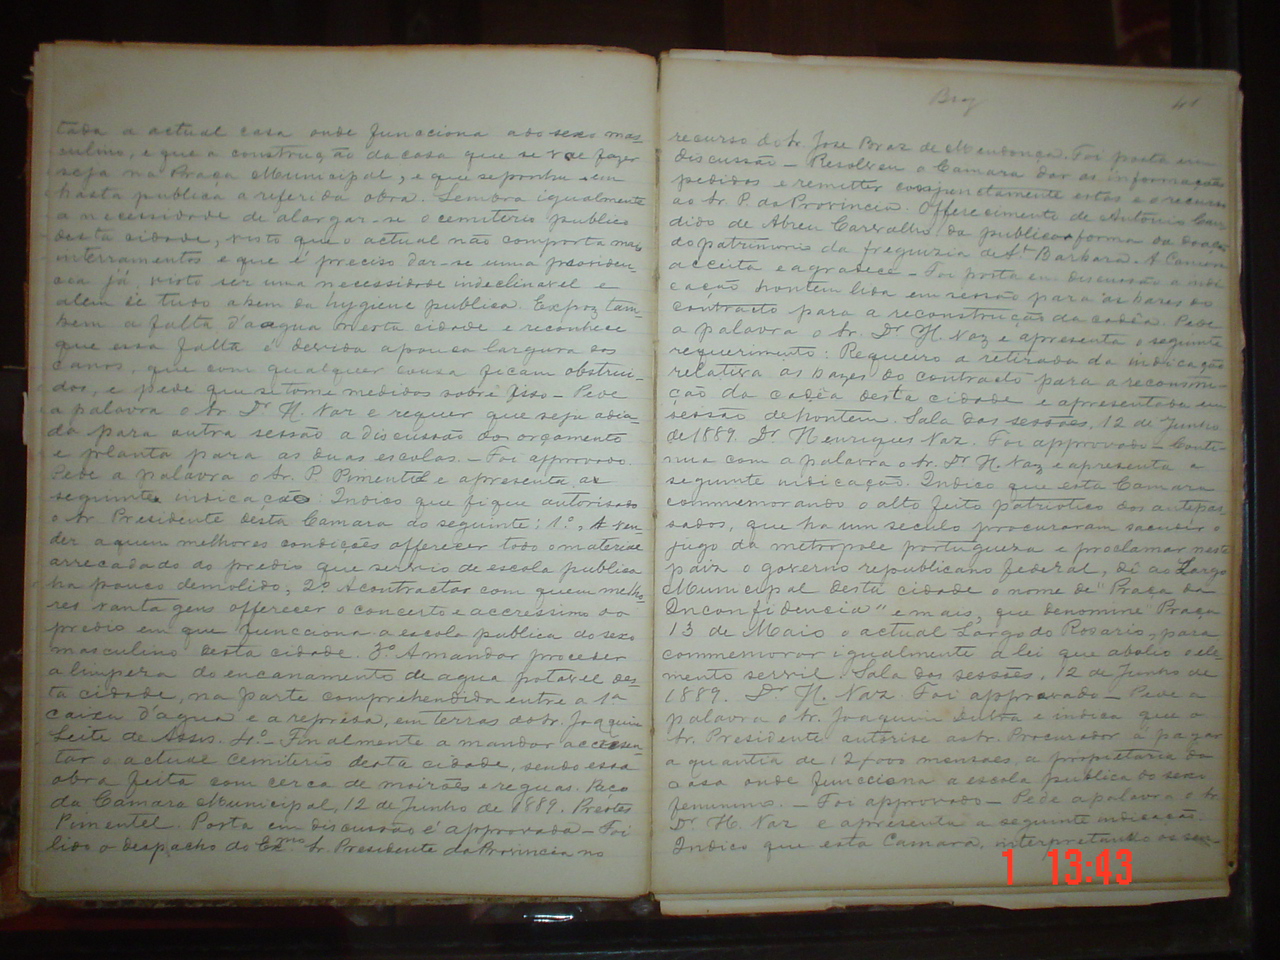 tada a actual casa onde funcciona a do sexo mas-
culino, e que a construcção da casa que se vae fazer
seja na Praça Municipal, e que se ponha em
hasta publica a referida obra. Lembra igualmente
a necessidade de alargar-se o cemiterio publico
desta cidade, visto que o actual não comporta mais
interramentos e que é preciso dar-se uma providen-
cia já, visto ser uma necessidade indeclinavel e
alem de tudo a bem da hygiene publica. Expoz tam-
bem a falta d'agua nesta cidade e reconhece
que essa falta é devida a pouca largura dos
canos, que com qualquer cousa ficam obstrui-
dos, e pede que se tome medidas sobre isso - Pede
a palavra o Sr. Dr. H. Vaz e requer que seja adia-
da para outra sessão a discussão dos orçamento
e planta para as duas escolas. - Foi approvado.
Pede a palavra o Sr. P. Pimentel e apresenta a
seguinte indicação: Indico que fique autorisado
o Sr. Presidente desta Camara do seguinte: 1º, A ven-
der a quem melhores condições offerecer todo o material
arrecadado do predio que serviu de escola publica
ha pouco demolido; 2º A contractar com quem melho-
res vantagens offerecer o concerto e accressimo do
predio em que funcciona a escola publica do sexo
masculino desta cidade. 3º A mandar proceder
a limpeza do encanamento de agua potavel des-
ta cidade, na parte comprehendida entre a 1ª
caixa d'agua e a represa, em terras do Sr. Joaquim
Leite de Assis. 4º - Finalmente a mandar accresen-
tar o actual cemiterio desta cidade, sendo essa
obra feita com cerca de moirões e reguas. Paço
da Camara Municipal, 12 de Junho de 1889. Prestes
Pimentel. Posta em discussão é approvada - Foi
lido o despacho do Exmo Sr. Presidente da Provincia no
41
recurso do Sr. Jose Braz de Mendonça. Foi posta em
discussão - Resolveu a Camara dar as informações
pedidas e remetter conjunctamente estas e o recurso
ao Sr. P. da Provincia. Offerecimento de Antonio Can-
dido de Abreu Carvalho da publica forma da doação
do patrimonio da freguezia de Sta Barbara. A Camara
acceita e agradece - Foi posta em discussão a indi-
cação hontem lida em sessão para as bases do
contracto para a reconstrucção da cadêa. Pede
a palavra o Sr. Dr. H. Vaz e apresenta o seguinte
requerimento: Requeiro a retirada da indicação
relativa as bazes do contracto para a reconstru-
ção da cadêa desta cidade e apresentada em
sessão de hontem. Sala das sessões, 12 de Junho
de 1889. Dr. Henrique Vaz. Foi approvado - Conti-
nua com a palavra o Sr. Dr. H. Vaz e apresenta a
seguinte indicação. Indico que esta Camara
commemorando o alto feito patriotico dos antepas-
sados, que ha um seculo procuraram sacudir o
jugo da metropole portugueza e proclamar neste
paiz o governo republicano federal, dê ao Largo
Municipal desta cidade o nome de "Praça da
Inconfidencia" e mais, que denomine Praça
13 de Maio o actual Largo do Rosario, para
commemorar igualmente a lei que abolio o ele-
mento servil. Sala das sessões, 12 de Junho de
1889. Dr. H. Vaz. Foi approvado - Pede a
palavra o Sr. Joaquim Dutra e indica que o
Sr. Presidente autorise ao Sr. Procurador á pagar
a quantia de 12$000 mensaes, a proprietaria da
casa onde funcciona a escola publica do sexo
feminino. - Foi approvado - Pede a palavra o Sr.
Dr. H. Vaz e apresenta a seguinte indicação
Indico que esta Camara, interpretando os sen-
1 13:43